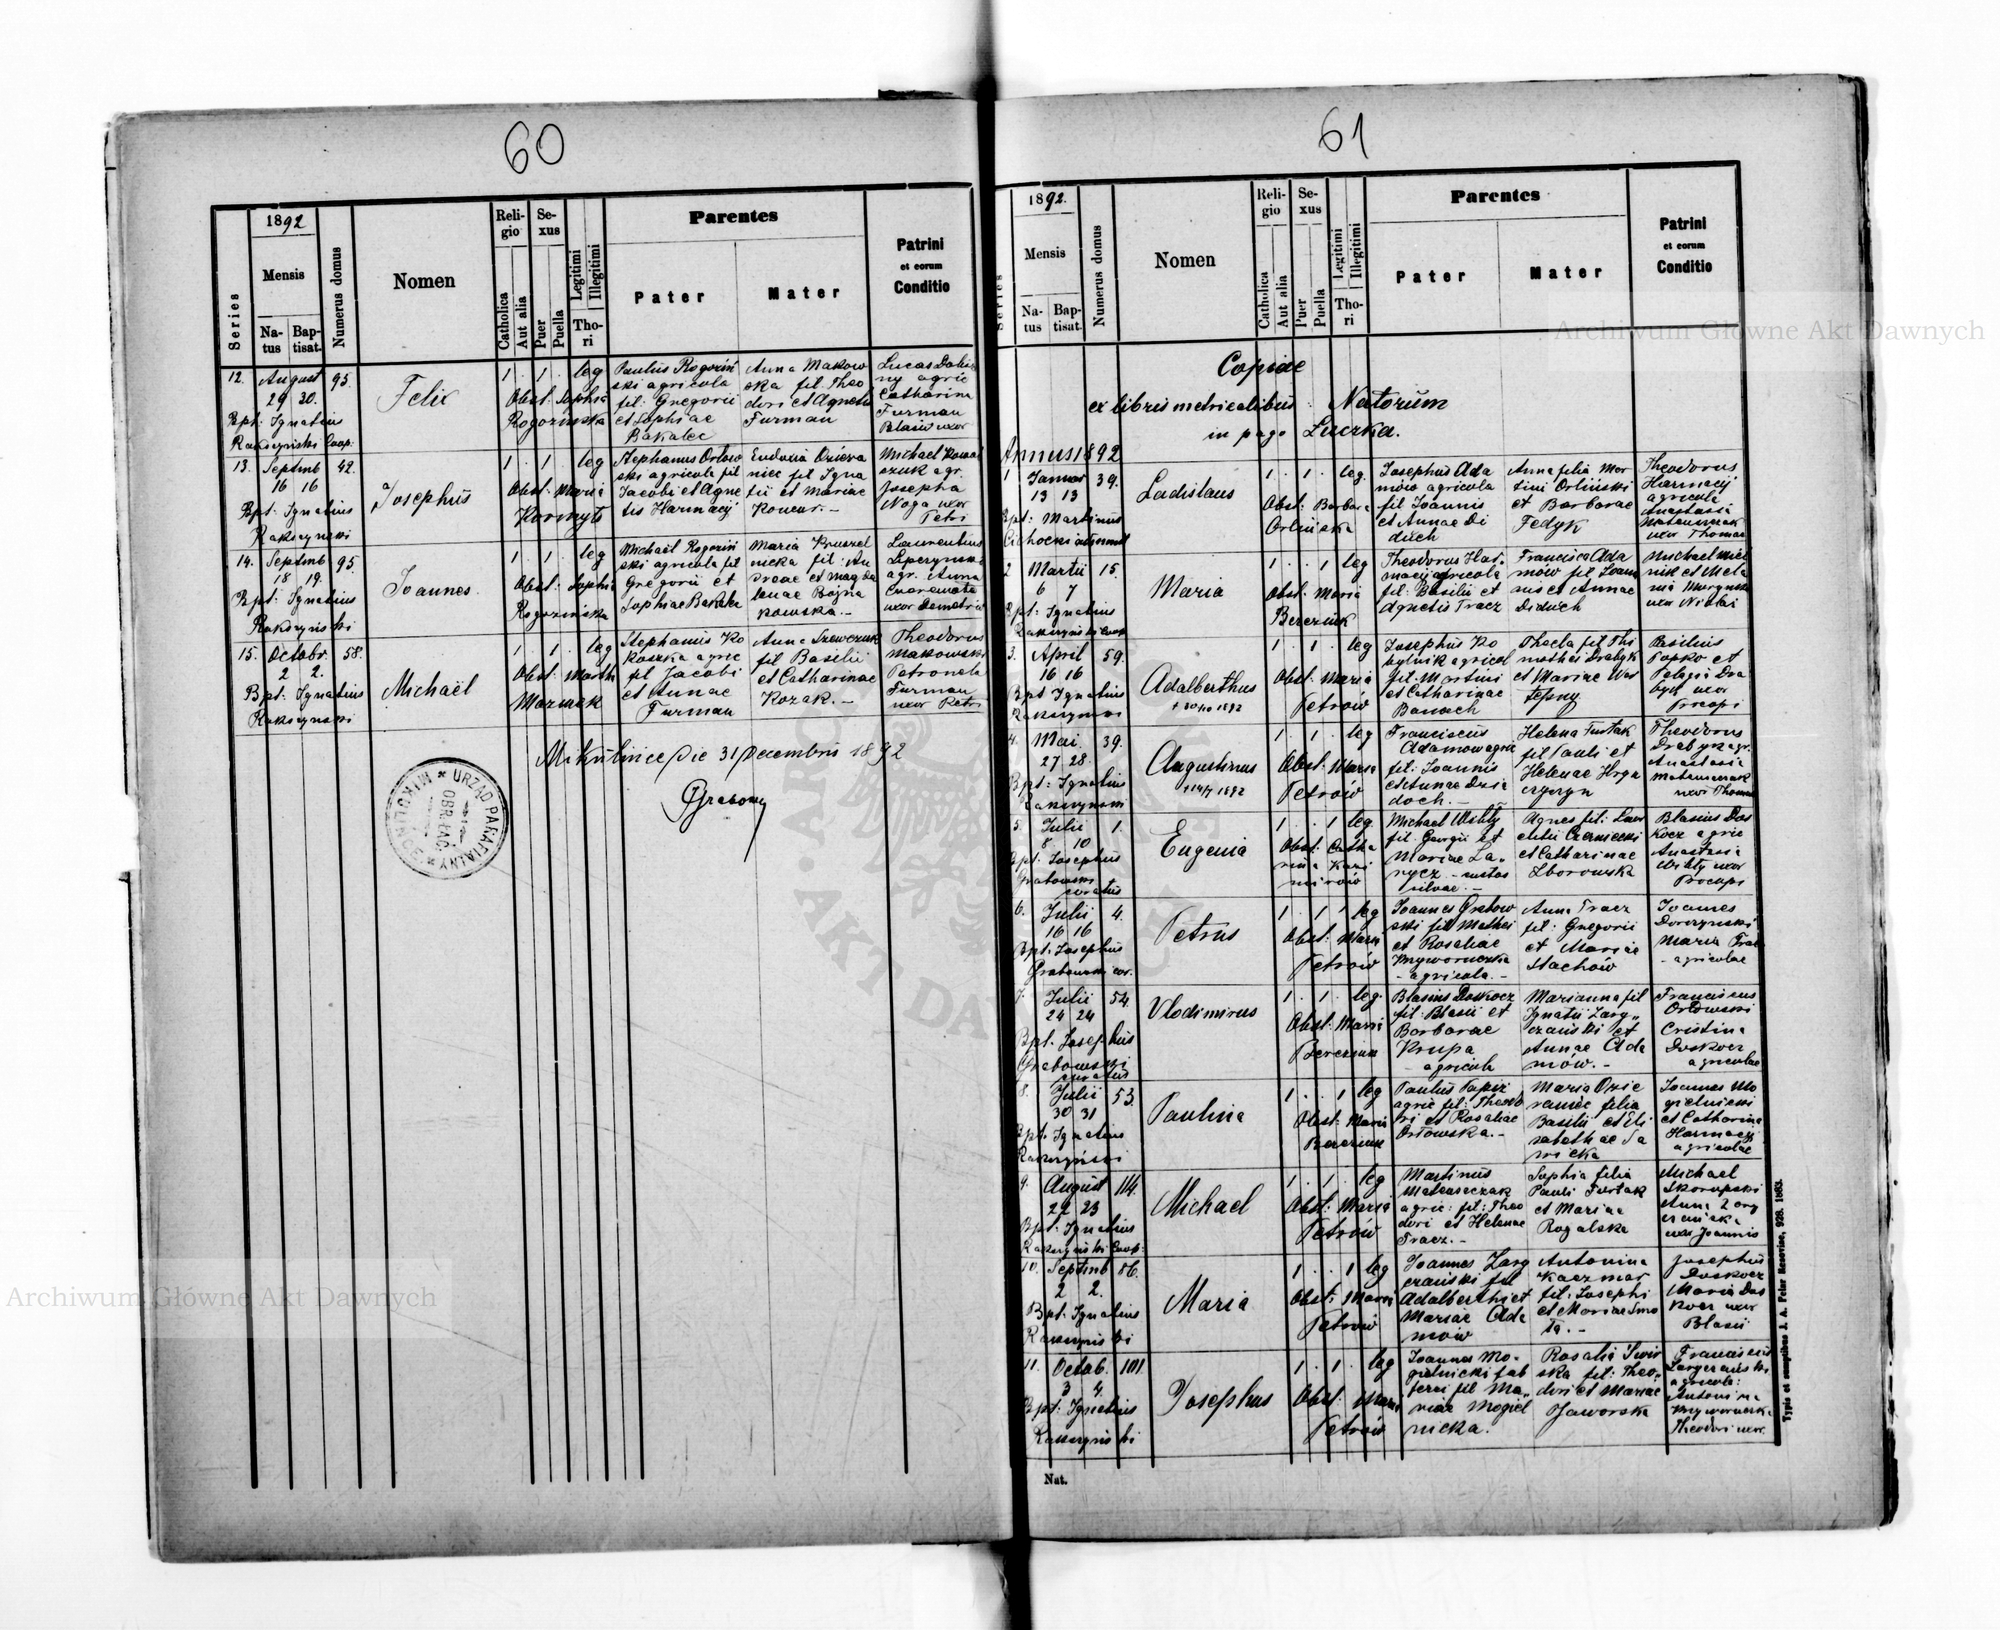 60
1892
Series
Mensis
Natus
Baptisat.
Numerus domus
Nomen
Religio
Catholica
Aut alia
Sexus
Puer
Puella
Legitimi
Illegitimi
Thori
Parentes
Pater
Mater
Patrini
et eorum
Conditio
12. August 95.
29 30.
Bpt: Ignatius
Rakszynski Coop:
Felix
1 . 1 . leg
Obst: Sophia
Rogozinska
Paulus Rogoziń
ski agricola
fil: Gregorii
et Sophiae
Bakalec
Anna Makow
ska fil. Theo
dori et Agnetis
Furman
Catharina
Furman
13. Septmb 42.
16 16
Bpt: Ignatius
Rakszynski
Josephus
1 . 1 . leg
Obst: Maria
Kormyts
Stephanus Orłow
ski agricola fil
Jacobi et Agne
tis Harmacij
tii et Mariae
Koncur. -
Michael Kowal
czuk agr.
Josepha
Noga uxor
Petri
14. Septmb 95.
18 19.
Bpt: Ignatius
Rakszynski
Joannes
1 . 1 . leg
Obst: Sophia
Rogozinska
Michaël Rogoziń
ski agricola fil
Gregorii et
Sophiae Bakalec
Maria
nicka fil: An
dreae et Magda
lenae Bojna
kowska. -
Laurentius
agr. Anna
uxor Demetrii
15. Octobr. 58.
2 2.
Bpt: Ignatius
Rakszynski
Michaël
1 . 1 . leg
Obst: Martha
Mazurak
Stephanus Ko
koszka agric
fil Jacobi
et Annae
Furman
Anna Szewczuk
fil Basilii
et Catharinae
Kozak. -
Theodorus
Makowski
Petronela
Furman
uxor Petri
Mikulince die 31 Decembris 1892
URZĄD PARAFIALNY
OBR. ŁAC.
MIKULIŃCE
61
1892.
Series
Mensis
Natus
Baptisat.
Numerus domus
Nomen
Religio
Catholica
Aut alia
Sexus
Puer
Puella
Legitimi
Illegitimi
Thori
Parentes
Pater
Mater
Patrini
et eorum
Conditio
Copiae
ex libris metricalibus Natorum
in pago Luczka.
Annus 1892
1 Januar 39.
13 13
Bpt: Martinus
Cichocki
Ladislaus
1 . 1 . leg.
Obst: Barbara
Orlińska
Josephus Ada
mów agricola
fil Joannis
et Annae Di
duch
Anna filia Mar
tini Orliński
et Barbarae
Fedyk
Theodorus
Harmacij
agricola
Anastasia
Matuszczak
uxor Thomae
2 Martii 15.
6 7
Bpt: Ignatius
Rakszynski Coop
Maria
1 . . 1 leg
Obst: Maria
Bereziuk
Theodorus Har
macij agricola
fil: Basilii et
Agnetis Tracz
Francisca Ada
mów fil Joan
nis et Annae
Diduch
3. April 59.
16 16
Bpt Ignatius
Rakszynski
Adalberthus
+ 20/10 1892
1 . 1 . leg
Obst: Maria
Petrów
Josephus Ko
bylnik agricol
fil: Martini
et Catharinae
Banach
Thecla fil Thi
mothei Drabyk
et Mariae
Basilius
Popko et
Pelagia Dra
byk uxor
Procopi
4. Mai. 39.
27 28.
Bpt: Ignatius
Rakszynski
Augustinus
1892
1 . 1 . leg
Obst: Maria
Petrów
Franciscus
Adamow agric
fil: Joannis
et Annae
Helena Furtak
fil Pauli et
Helenae
Theodorus
Drabyk agr.
Anastasia
Matuszczak
uxor Thomae
5. Julii 1.
8 10
Bpt: Josephus
Grabowski
curatus
Eugenia
1 . . 1 leg
Obst: Catha
rina Kazi
mirów
fil: Georgii et
Mariae La
rycz - custos
silvae. -
Agnes fil: Laur
entii Czerniecki
et Catharinae
Zborowska
Blasius Dos
kocz agric
Anastasia
uxor
Procopi
6. Julii 4.
16 16
Bpt: Josephus
Grabowski cur.
Petrus
1 . 1 . leg
Obst: Maria
Petrów
Joannes Grabow
ski fil Mathei
et Rosaliae
- agricola. -
Anna Tracz
fil: Gregorii
et Mariae
Stachów
Joannes
Dorczynski
Maria
- agricolae
7. Julii 54.
24 24
Bpt. Josephus
Grabowski
curatus
Vlodimirus
1 . 1 . leg.
Obst: Maria
Bereziuk
Blasius Doskocz
fil: Blasii et
Barbarae
Krupa
- agricola
Marianna fil
Ignatii Zarg
czański et
Annae Ada
mów. -
Franciscus
Orłowski
Cristina
Doskocz
agricolae
8. Julii 53.
30 31
Bpt. Ignatius
Rakszynski
Paulina
1 . . 1 leg
Obst: Maria
Bereziuk
Paulus
agric fil: Theodo
ri et Rosaliae
Orłowska. -
Maria Ozie
filia
Basilii et Eli
sabethae Sa
wicka
Joannes Mo
gielnicki
et Catharina
Harmacij
agricolae
9. August 114.
22 23
Bpt: Ignatius
Rakszynski Coop:
Michael
1 . 1 . leg
Obst: Maria
Petrów
Martinus
Mateuszczak
agric: fil: Theo
dori et Helenae
Tracz. -
Sophia filia
Pauli Furtak
et Mariae
Rogalska
Michael
Skorupski
Anna Zarg
czańska
uxor Joannis
10. Septmb 86.
2 2.
Bpt: Ignatius
Rakszynski
Maria
1 . . 1 leg
Obst: Maria
Petrów
Joannes Zarg
czański fil
Adalberthi et
Mariae Ada
mów
Antonina
Kaczmar
fil: Josephi
et Mariae Smo
ła. -
Josephus
Doskocz
Maria Dos
kocz uxor
Blasii
11. Octob. 101.
3 4.
Bpt: Ignatius
Rakszynski
Josephus
1 . 1 . leg
Obst: Maria
Petrów
Joannes Mo
gielnicki fab
ferri fil Ma
riae Mogiel
nicka.
Rosalia Swir
ska fil: Theo
dori et Mariae
Jaworska
Franciscus
Zargczański
agricola:
Antonina
Theodori uxor.
Nat.
Typis et sumptibus J. A. Pelar Resoviae, 928. 1883.
Archiwum Główne Akt Dawnych
Archiwum Główne Akt Dawnych